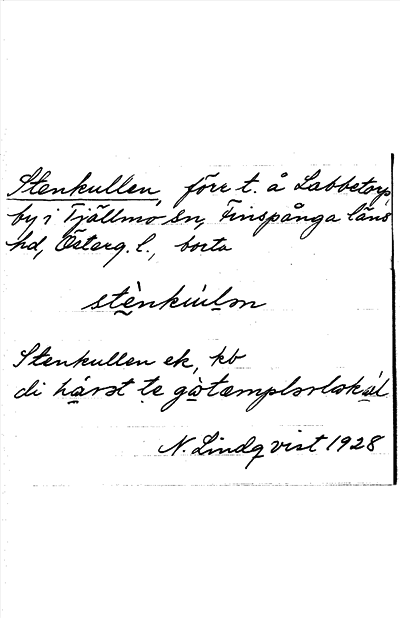 Stenkullen, förr t. å Labbetorp
by i Tjällmo sn, Finspånga läns
hd, Österg. l., borta
stènkùlən
Stenkullen ek, kb
di har te
N. Lindqvist 1928